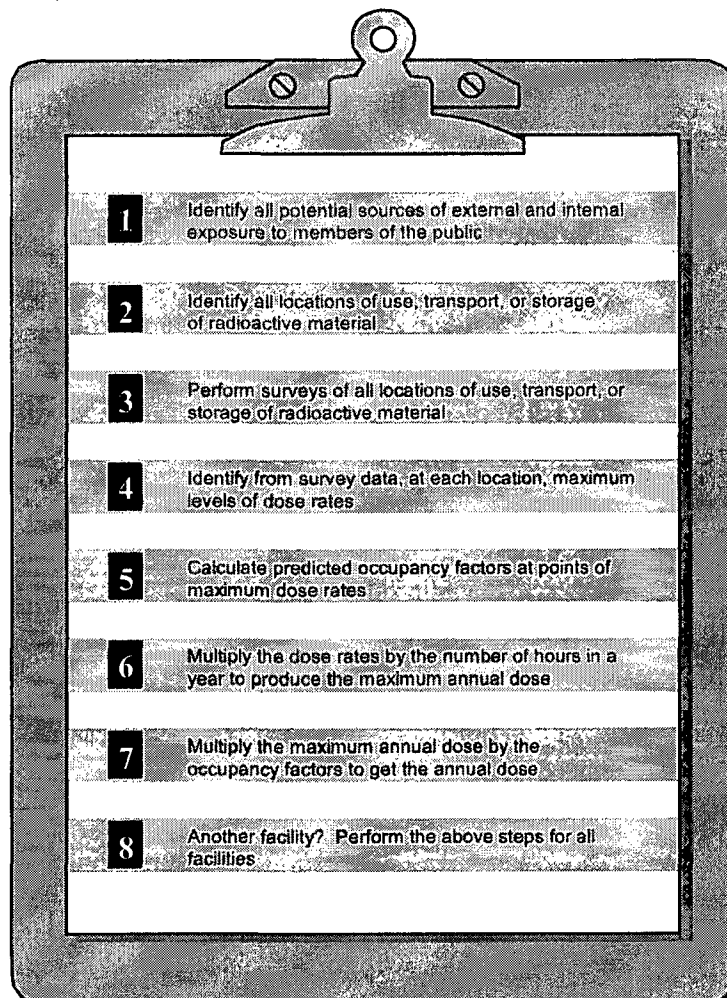 1 Identify all potential sources of external and internal
exposure to members of the public
2 Identify all locations of use, transport, or storage
of radioactive material
3 Perform surveys of all locations of use, transport, or
storage of radioactive material
4 Identify from survey data, at each location, maximum
levels of dose rates
5 Calculate predicted occupancy factors at points of
maximum dose rates
6 Multiply the dose rates by the number of hours in a
year to produce the maximum annual dose
7 Multiply the maximum annual dose by the
occupancy factors to get the annual dose
8 Another facility? Perform the above steps for all
facilities